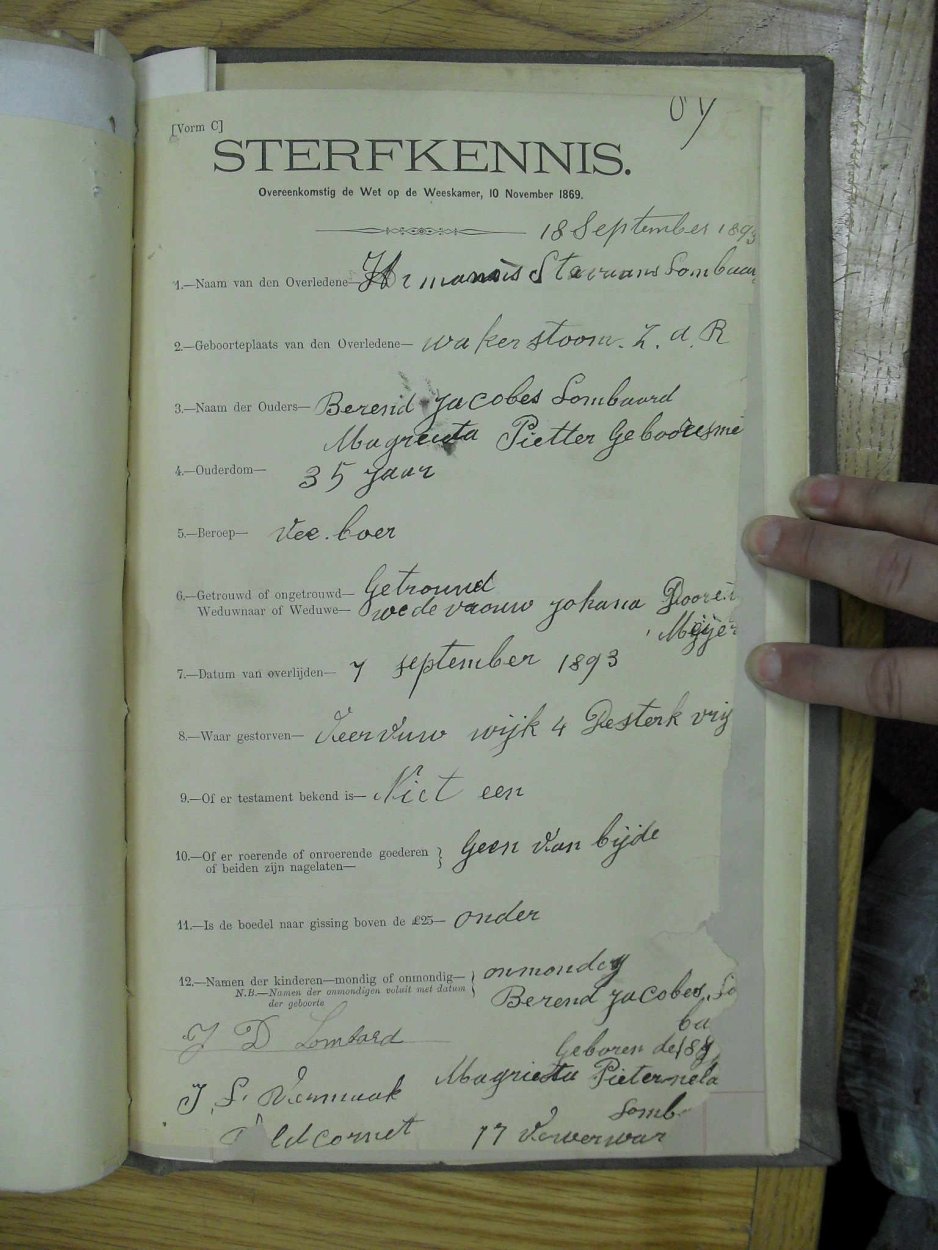 [Vorm C]
STERFKENNIS.
Overeenkomstig de Wet op de Weeskamer, 10 November 1869.
18 September 1893
1.—Naam van den Overledene— Lombaar
2.—Geboorteplaats van den Overledene— wakerstoom. Z. d. R
3.—Naam der Ouders— Berend Jacobes Lombaard
Magrieta Pietter
4.—Ouderdom— 35 jaar
5.—Beroep— Vee. boer
6.—Getrouwd of ongetrouwd— Getrouwd
Weduwnaar of Weduwe— johana
7.—Datum van overlijden— 7 september 1893
8.—Waar gestorven— wijk 4
9.—Of er testament bekend is— Niet een
10.—Of er roerende of onroerende goederen } Geen van bijde
of beiden zijn nagelaten—
11.—Is de boedel naar gissing boven de £25— onder
12.—Namen der kinderen—mondig of onmondig— { onmondeg
N.B.—Namen der onmondigen voluit met datum
der geboorte
Berend Jacobes Lo
ba
J D Lombard
Geboren de
Magrieta Pieternela
J. S. Vermaak
Lomb
ldcornet 17